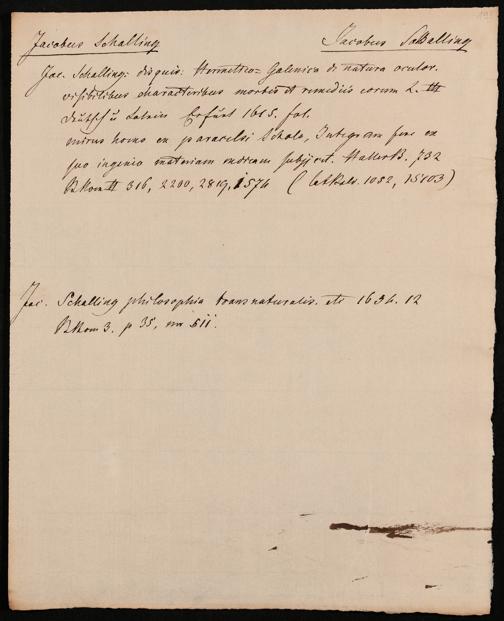 Jacobus Schalling Jacobus Schalling
Jac. Schalling: disquis: Hermetico= Galenica di natura oculor.
visibilibus characteribus morbis et remediis eorum L. III
deutsch u Latein Erfurt 1615. fol.
mirus homo ex paracelsi Schola, Integram fere ex
suo ingenio materiam medicam subjecit. Haller B. 732
B Kom II 316, 2200, 2819, 1574 ( 1052, 15103)
Jac. Schalling philosophia transnaturalis. etc 1636. 12
B Kom 3. p 35, nr 511.